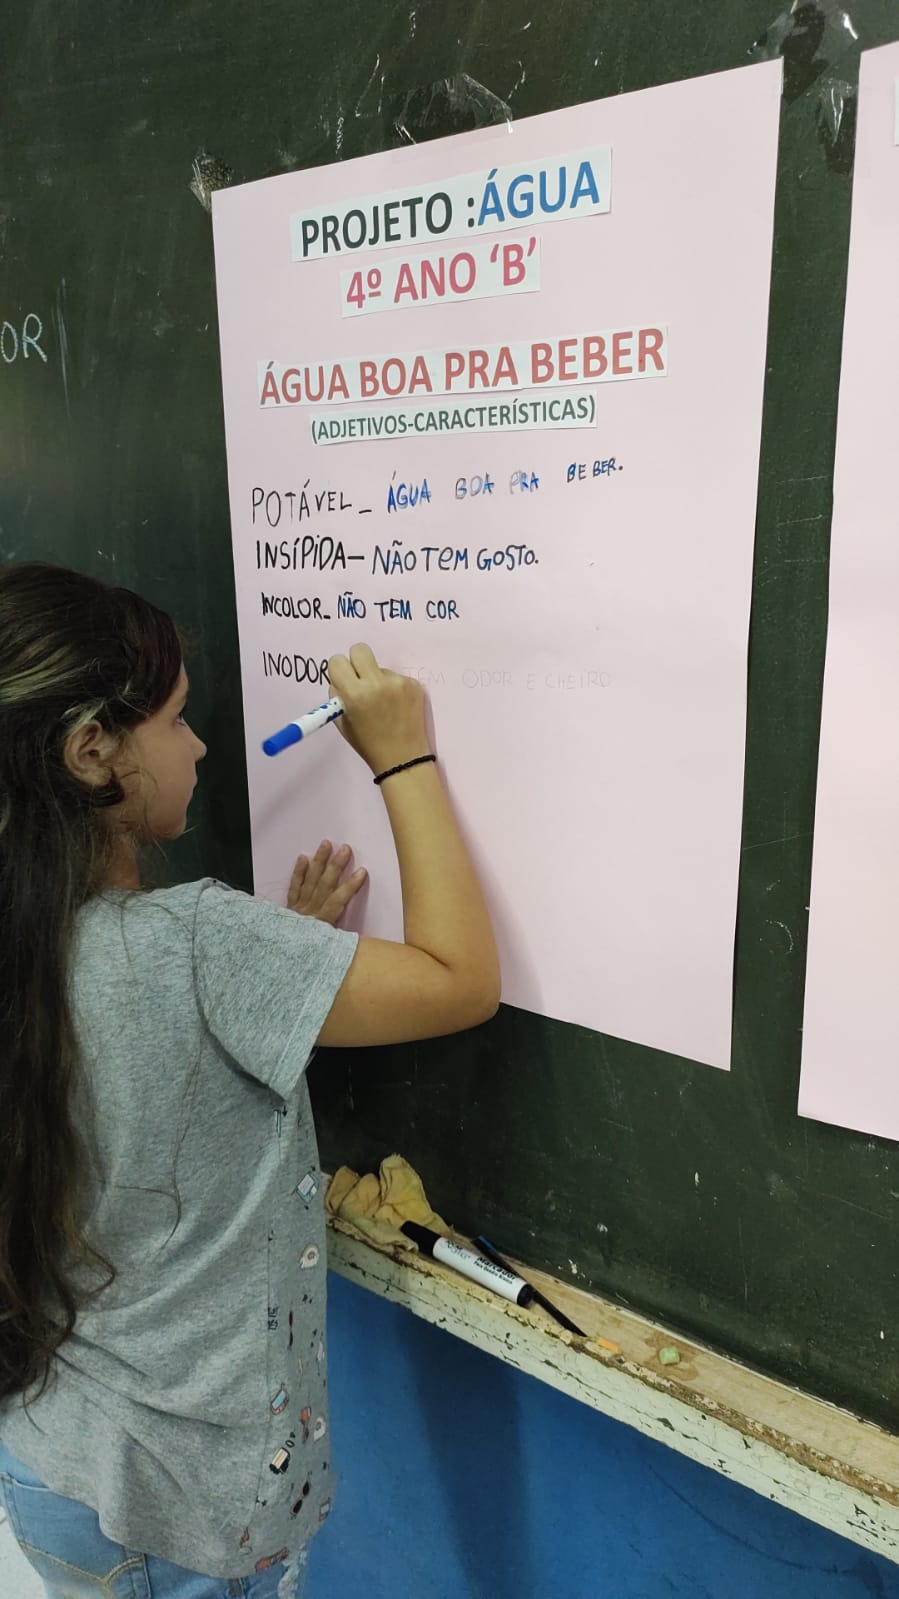 PROJETO :ÁGUA
4º ANO 'B'
ÁGUA BOA PRA BEBER
(ADJETIVOS-CARACTERÍSTICAS)
POTÁVEL_ ÁGUA BOA PRA BEBER.
INSÍPIDA- NÃO TEM GOSTO.
INCOLOR_ NÃO TEM COR
INODOR TEM ODOR E CHEIRO
OR
Marcador
Para Quadro Branco